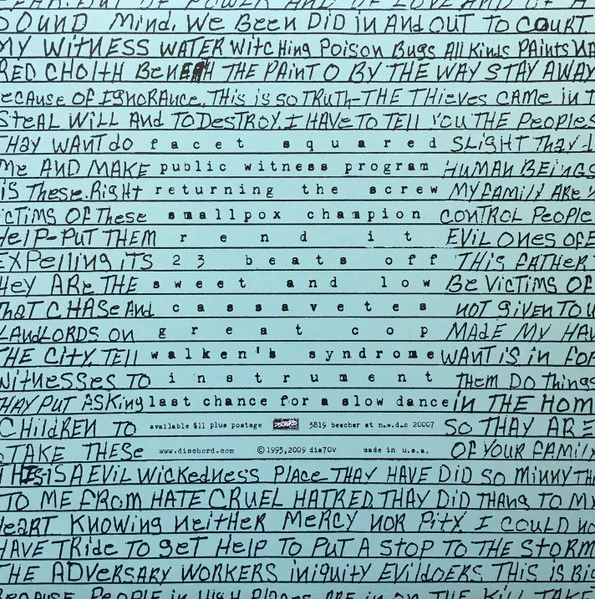 SOUND Mind, We Been Did in And OUT TO COURT
MY WITNESS WATER WITCHing Poison Bugs All Kinds PAinTs
RED CHOITH BenEAH THE PAinT O BY THE WAY STAY AWAY
ecAuse OF IGnoRAnce. THis is so TRuTH-THE THieves CAME in T
STEAL Will And To DesTRoy. I HAve To Tell You THE PeoplEs
THAY WANT do facet squared SLigHT THAY
Me AND MAKE public witness program HuMAN BEings
is THese. RigHT returning the screw MY FAMily ARE
icTims OF THese smallpox champion CONTROL PEOPLE
HElP-PUT THEM rend it EVil Ones OFE
EXPElling iTS 23 beats off THis FATHER
HEY ARE THE sweet and low BE VicTims OF
THAT CHASE And cassavetes noT giVEn To u
LAndLORDS on great cop MADE MY HAV
THE CiTY. TEll walken's syndrome WANT is in FoR
WiTNESSES TO instrument THEM Do THings
THAY PUT ASKing last chance for a slow dance in THE HOM
CHildREn TO available $11 plus postage DISCHORD 3819 beecher st n.w.d.c 20007 SO THAY ARE
TAKE THESE www.dischord.com ©1993,2009 dis70V made in u.s.a. OF YOUR FAMILY
THIS IS A EVil WickEdness PlAce THAY HAVE DiD SO MinnY TH
TO ME FROM HATE CRUEL HATRED. THAY DiD THAng TO MY
HeART Knowing nEiTHER MERCY noR PiTY. I COULD no
HAVE TRide To geT HELP To PUT A STOP TO THE STORM
THE ADVERSARY WORKERS iniquiTY EVildoERS. THis is
BECAUSE PEOPLE in HigH PlAces ARE in on THE Kill TAKE